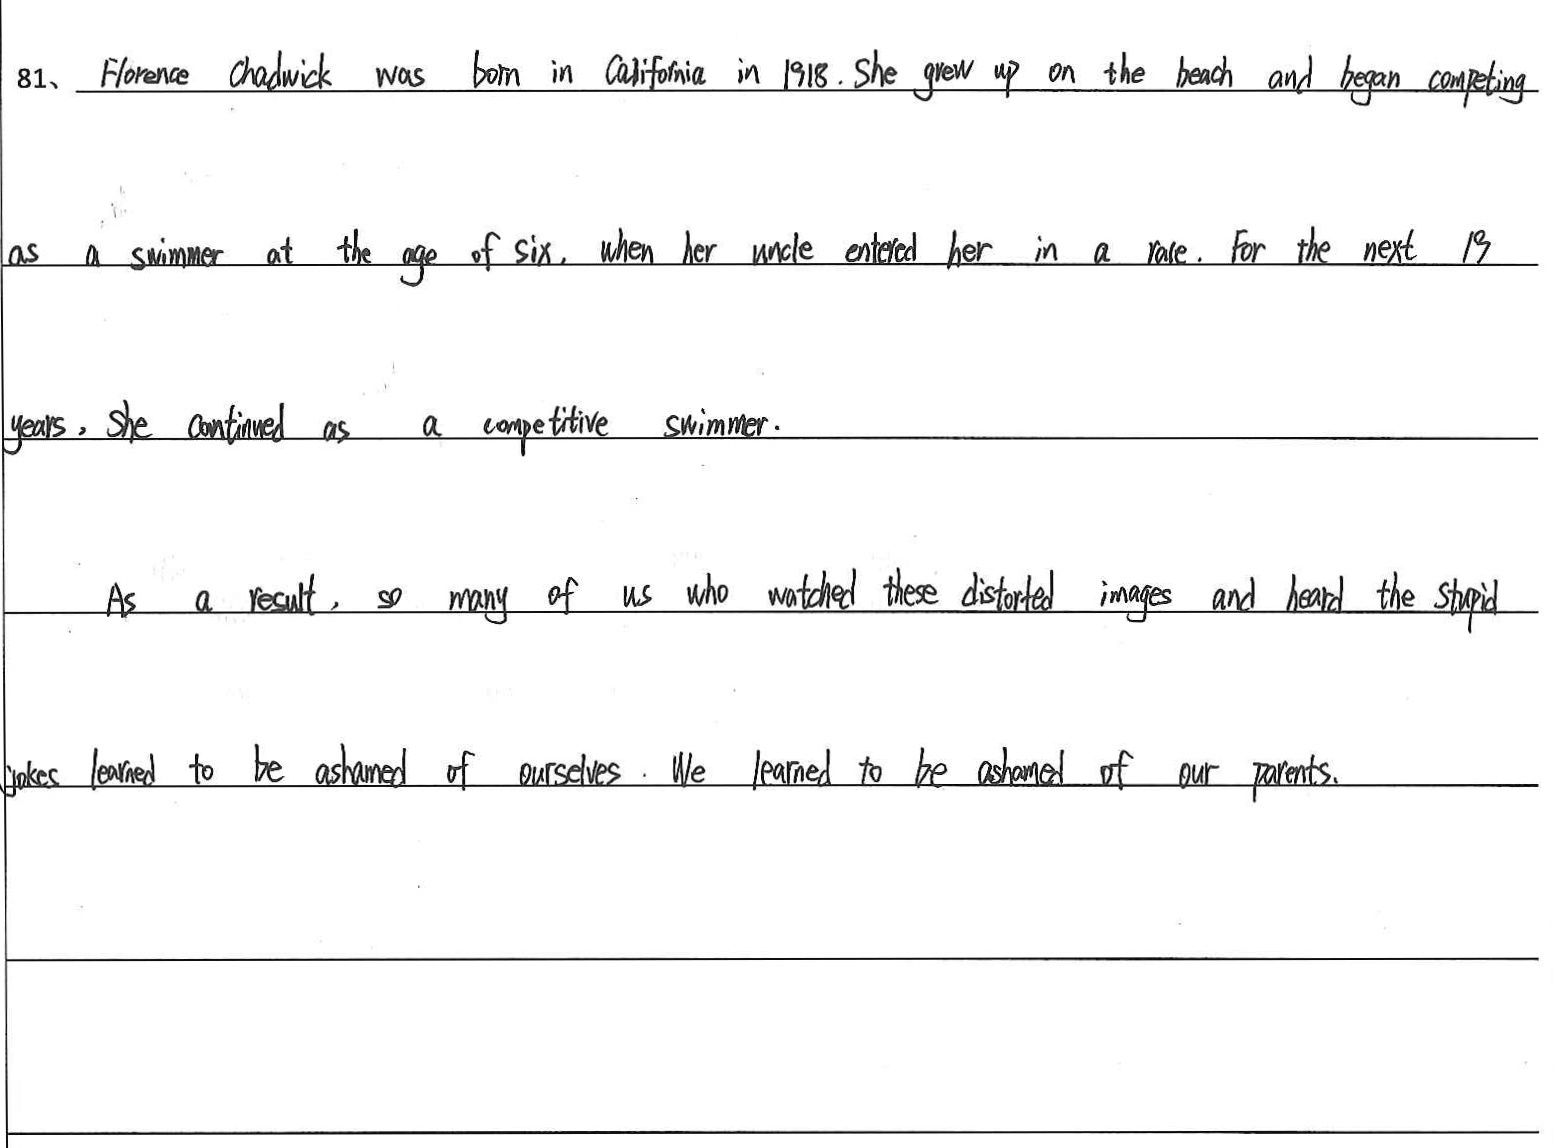 81、 Florence Chadwick was born in California in 1918. She grew up on the beach and began competing
as a swimmer at the age of six, when her uncle entered her in a race. For the next 19
years, she continued as a competitive swimmer.
As a result, so many of us who watched these distorted images and heard the stupid
jokes learned to be ashamed of ourselves. We learned to be ashamed of our parents.